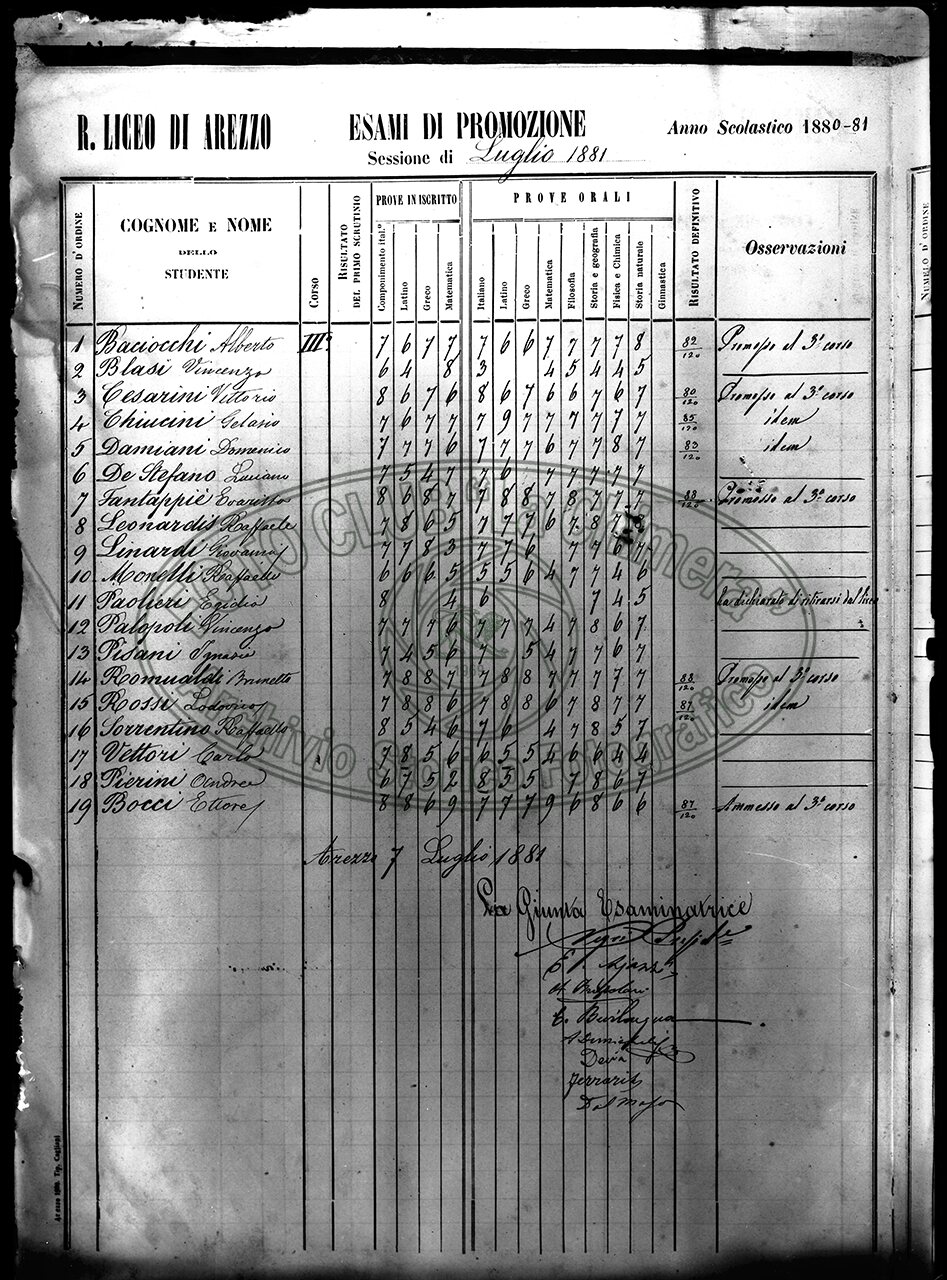 R. LICEO DI AREZZO
ESAMI DI PROMOZIONE
Anno Scolastico 1880-81
Sessione di Luglio 1881
NUMERO D'ORDINE
COGNOME E NOME
DELLO
STUDENTE
Corso
RISULTATO
DEL PRIMO SCRUTINIO
PROVE IN ISCRITTO
Componimento ital.º
Latino
Greco
Matematica
PROVE ORALI
Italiano
Latino
Greco
Matematica
Filosofia
Storia e geografia
Fisica e Chimica
Storia naturale
Ginnastica
RISULTATO DEFINITIVO
Osservazioni
NUMERO D'ORDINE
1 Baciocchi Alberto III 7 6 7 7 7 6 6 7 7 7 7 8 82/120 Promosso al 3º corso
2 Blasi Vincenzo 6 4 8 3 4 5 4 4 5
3 Cesarini Vittorio 8 6 7 6 8 6 7 6 6 7 6 7 80/120 Promosso al 3º corso
4 Chiucini Gelasio 7 6 7 7 7 9 7 7 7 7 7 7 85/120 idem
5 Damiani Domenico 7 7 7 6 7 7 7 6 7 7 8 7 83/120 idem
6 De Stefano Luciano 7 5 4 7 7 6 7 7 7 7 7
7 Fantappiè Evaristo 8 6 8 7 7 8 8 7 8 7 7 7 88/120 Promosso al 3º corso
8 Leonardis Raffaele 7 8 6 5 7 7 7 6 7 8 7
9 Linardi Giovanni 7 7 8 3 7 7 6 7 7 6 7
10 Monelli Raffaello 6 6 6 5 5 5 6 4 7 7 4 6
11 Paolieri Egidio 8 4 6 7 4 5 ha dichiarato di ritirarsi dal liceo
12 Palopoli Vincenzo 7 7 7 6 7 7 7 4 7 8 6 7
13 Pisani Ignazio 7 4 5 6 7 5 4 7 7 6 7
14 Romualdi Brunetto 7 8 8 7 7 8 8 7 7 7 7 7 88/120 Promosso al 3º corso
15 Rossi Lodovico 7 8 8 6 7 8 8 6 7 8 7 7 87/120 idem
16 Sorrentino Raffaello 8 5 4 6 7 6 4 7 8 5 7
17 Vettori Carlo 7 8 5 6 6 5 5 4 6 6 4 4
18 Pierini Andrea 6 7 5 2 8 5 5 7 8 6 7
19 Bocci Ettore 8 8 6 9 7 7 7 9 6 8 6 6 87/120 Ammesso al 3º corso
Arezzo 7 Luglio 1881
La Giunta Esaminatrice
E. Burlingua
Devà
Ferraris
Dal Maso
Archivio Storico Fotografico